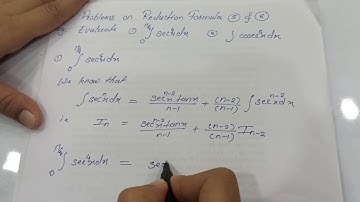 Problems on Reduction Formula ⑤ & ⑥
Evaluate ① ₀∫^(π/4) sec⁴x dx ② ∫ cosec⁵x dx
① ₀∫^(π/4) sec⁴x dx
We know that
∫ secⁿx dx = secⁿ⁻²x tanx / n-1 + (n-2)/(n-1) ∫ secⁿ⁻²x dx
ie Iₙ = secⁿ⁻²x tanx / n-1 + (n-2)/(n-1) Iₙ₋₂
₀∫^(π/4) sec⁴x dx = sec